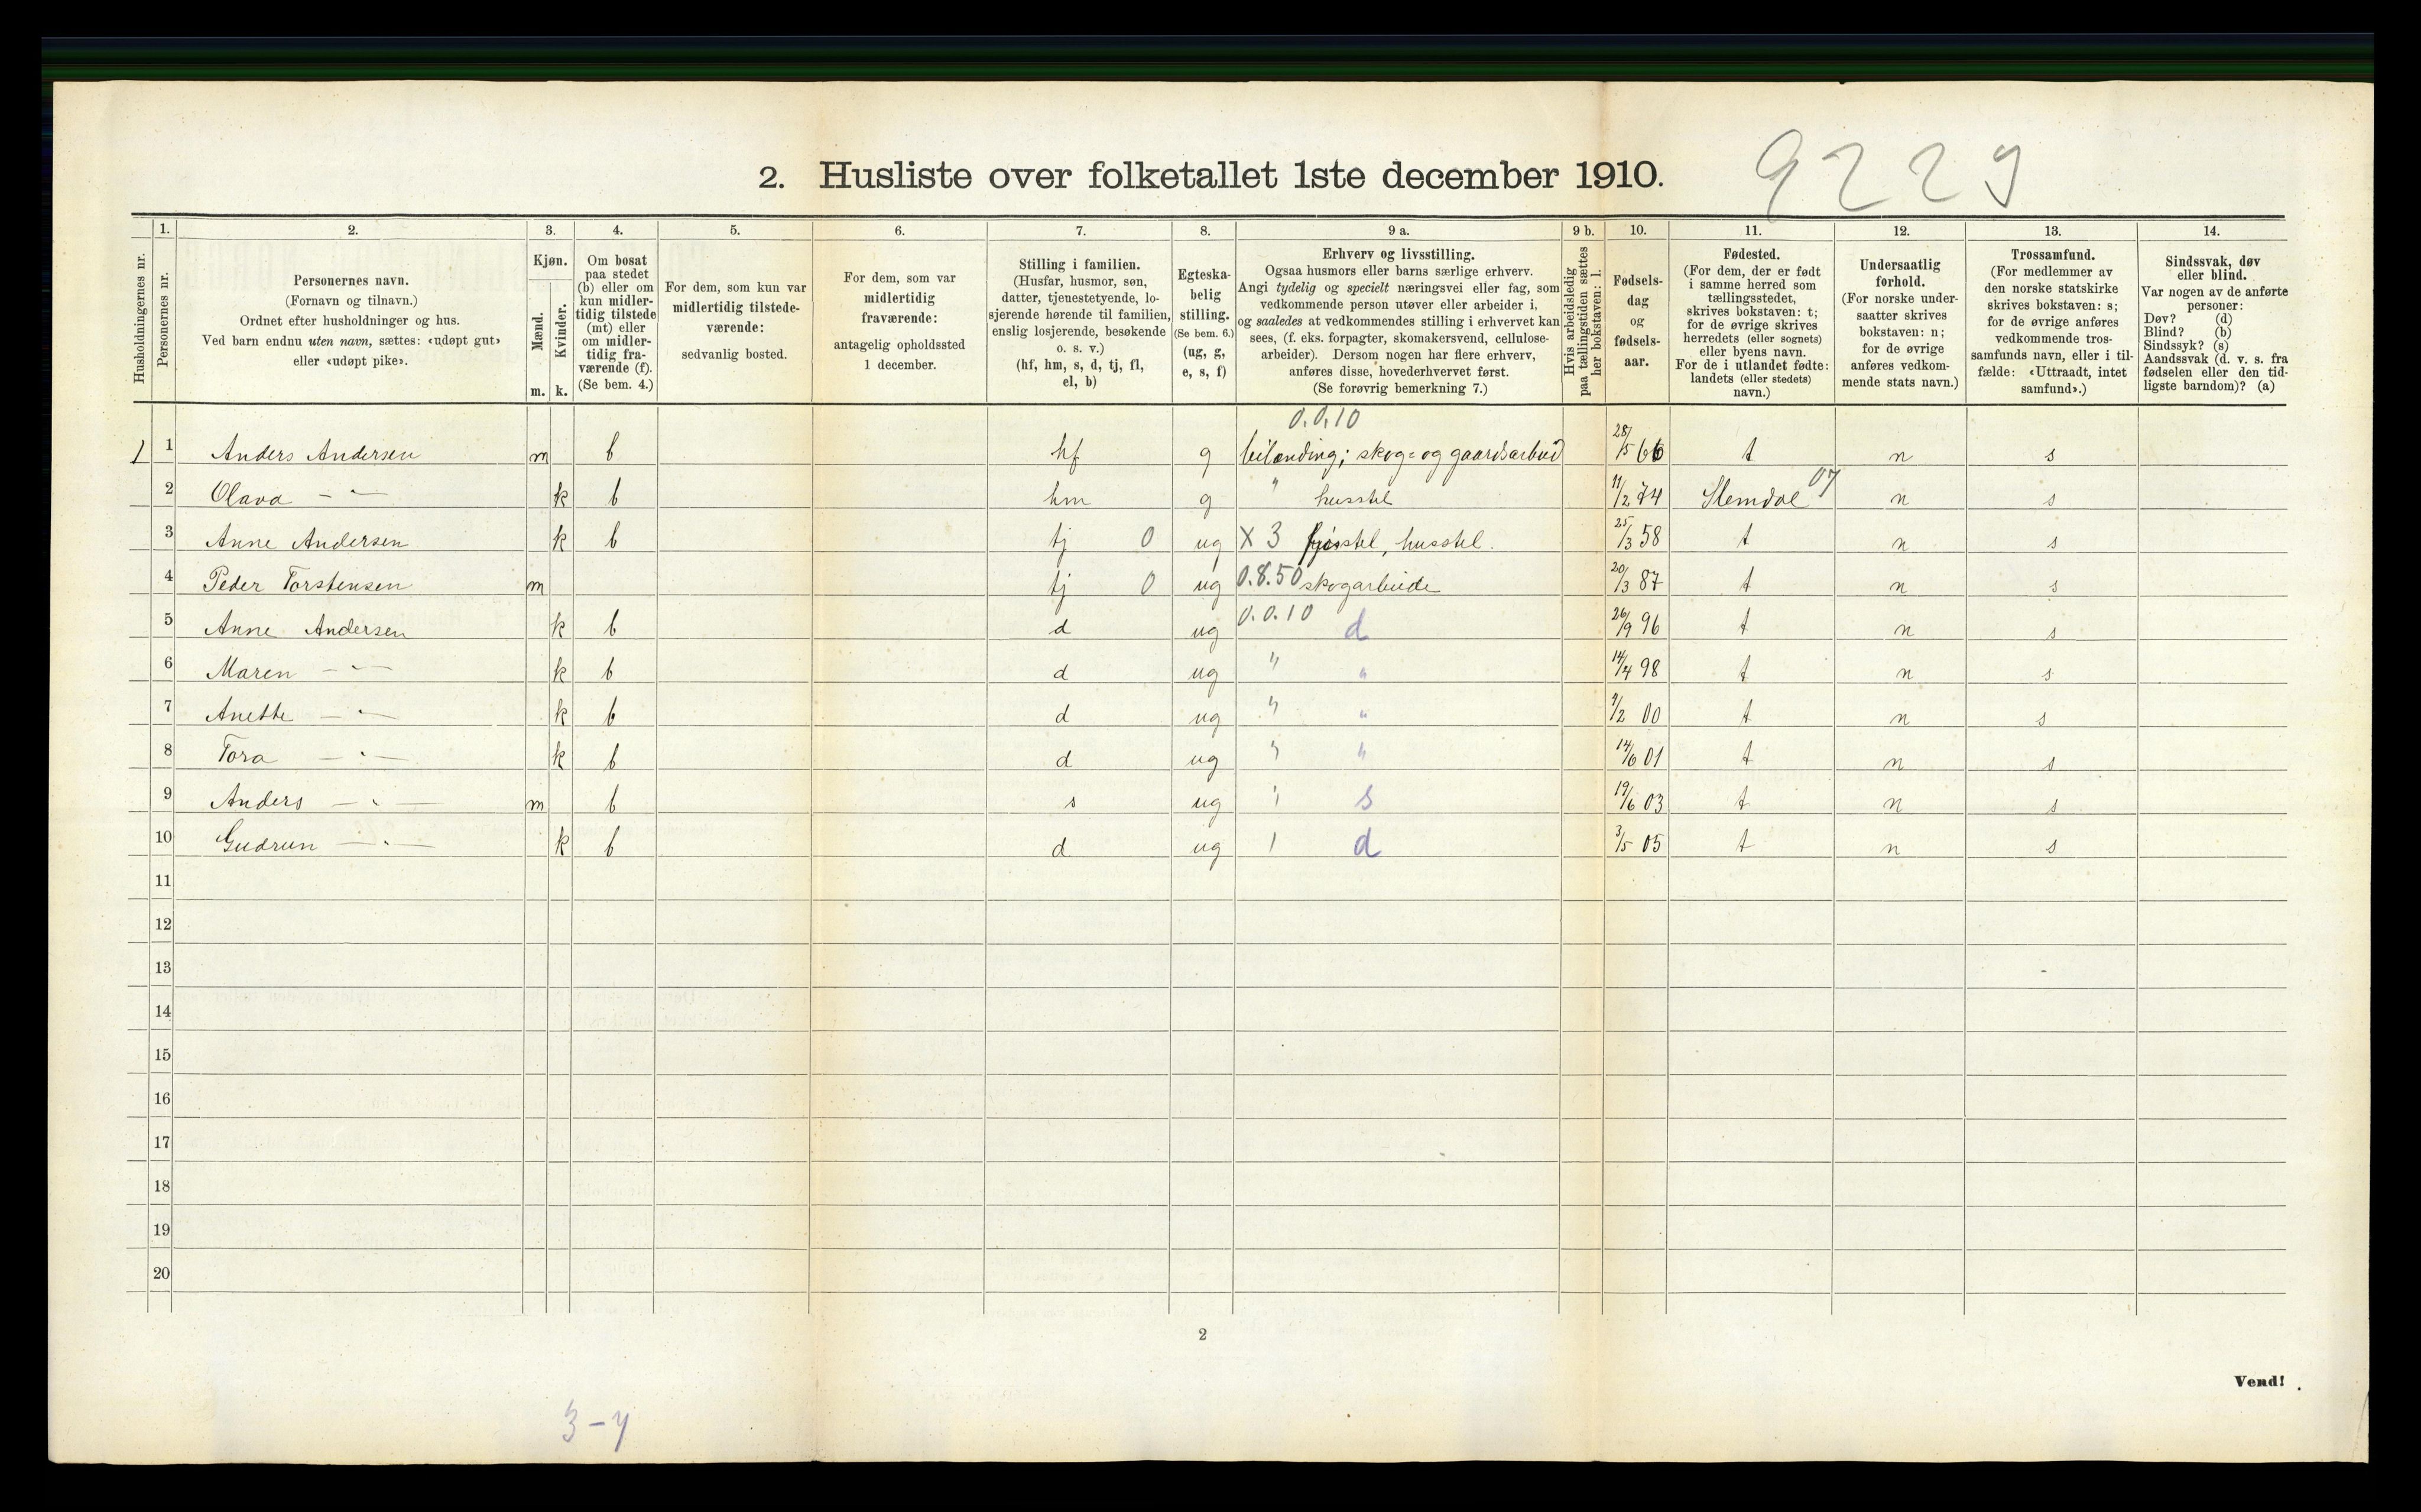 2. Husliste over folketallet 1ste december 1910.
9229
Husholdningernes nr.
1.
Personernes nr.
2.
Personernes navn.
(Fornavn og tilnavn.)
Ordnet efter husholdninger og hus.
Ved barn endnu uten navn, sættes: «udøpt gut»
eller «udøpt pike».
3.
Kjøn.
Mænd.
Kvinder.
m. k.
4.
Om bosat
paa stedet
(b) eller om
kun midler-
tidig tilstede
(mt) eller
om midler-
tidig fra-
værende (f).
(Se bem. 4.)
5.
For dem, som kun var
midlertidig tilstede-
værende:
sedvanlig bosted.
6.
For dem, som var
midlertidig
fraværende:
antagelig opholdssted
1 december.
7.
Stilling i familien.
(Husfar, husmor, søn,
datter, tjenestetyende, lo-
sjerende hørende til familien,
enslig losjerende, besøkende
o. s. v.)
(hf, hm, s, d, tj, fl,
el, b)
8.
Egteska-
belig
stilling.
(Se bem. 6.)
(ug, g,
e, s, f)
9 a.
Erhverv og livsstilling.
Ogsaa husmors eller barns særlige erhverv.
Angi tydelig og specielt næringsvei eller fag, som
vedkommende person utøver eller arbeider i,
og saaledes at vedkommendes stilling i erhvervet kan
sees, (f. eks. forpagter, skomakersvend, cellulose-
arbeider). Dersom nogen har flere erhverv,
anføres disse, hovederhvervet først.
(Se forøvrig bemerkning 7.)
9 b.
Hvis arbeidsledig
paa tællingstiden sættes
her bokstaven: l.
10.
Fødsels-
dag
og
fødsels-
aar.
11.
Fødested.
(For dem, der er født
i samme herred som
tællingsstedet,
skrives bokstaven: t;
for de øvrige skrives
herredets (eller sognets)
eller byens navn.
For de i utlandet fødte:
landets (eller stedets)
navn.)
12.
Undersaatlig
forhold.
(For norske under-
saatter skrives
bokstaven: n;
for de øvrige
anføres vedkom-
mende stats navn.)
13.
Trossamfund.
(For medlemmer av
den norske statskirke
skrives bokstaven: s;
for de øvrige anføres
vedkommende tros-
samfunds navn, eller i til-
fælde: «Uttraadt, intet
samfund».)
14.
Sindssvak, døv
eller blind.
Var nogen av de anførte
personer:
Døv? (d)
Blind? (b)
Sindssyk? (s)
Aandssvak (d. v. s. fra
fødselen eller den tid-
ligste barndom)? (a)
0.0.10
1 1 Anders Andersen m b hf g skog- og gaardsarbeid 28/5 66 t n s
2 Olava - " - k b hm g " husstel 11/2 74 Slemdal 07 n s
3 Anne Andersen k b tj 0 ug X 3 fjøsstel, husstel. 25/3 58 t n s
4 Peder Torstensen m tj 0 ug 0.8.50 skogarbeide 20/3 87 t n s
5 Anne Andersen k b d ug 0.0.10 d 26/9 96 t n s
6 Maren - " - k b d ug " " 14/4 98 t n s
7 Anette - " - k b d ug " " 9/2 00 t n s
8 Tora - " - k b d ug " " 14/6 01 t n s
9 Anders - " - m b s ug " s 19/6 03 t n s
10 Gudrun - " - k b d ug " d 3/5 05 t n s
11
12
13
14
15
16
17
18
19
20
2
Vend!
3-7